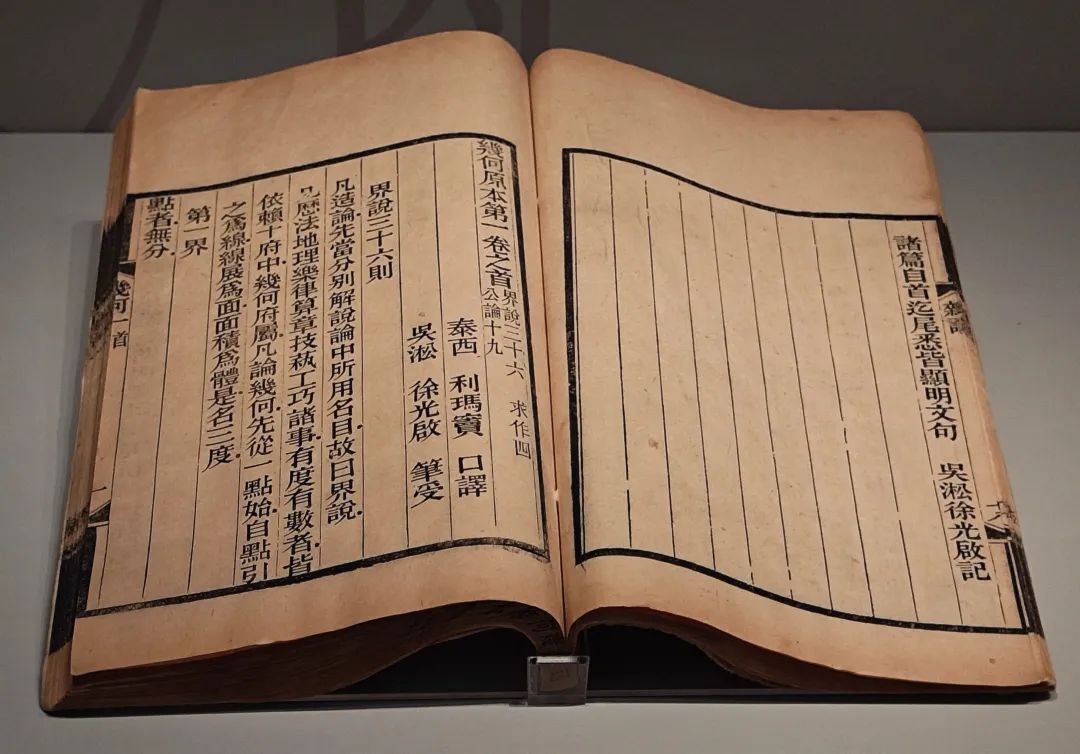 諸篇自首迄尾悉皆顯明文句　吳淞徐光啟記
幾何原本第一卷之首 界說三十六　求作四
公論十九
泰西　利瑪竇　口譯
吳淞　徐光啟　筆受
界說三十六則
凡造論先當分別解說論中所用名目故曰界說
凡歷法地理樂律算章技蓺工巧諸事有度有數者皆
依賴十府中幾何府屬凡論幾何先從一點始自點引
之爲線線展爲面面積爲體是名三度
第一界
點者無分
幾何　首　一